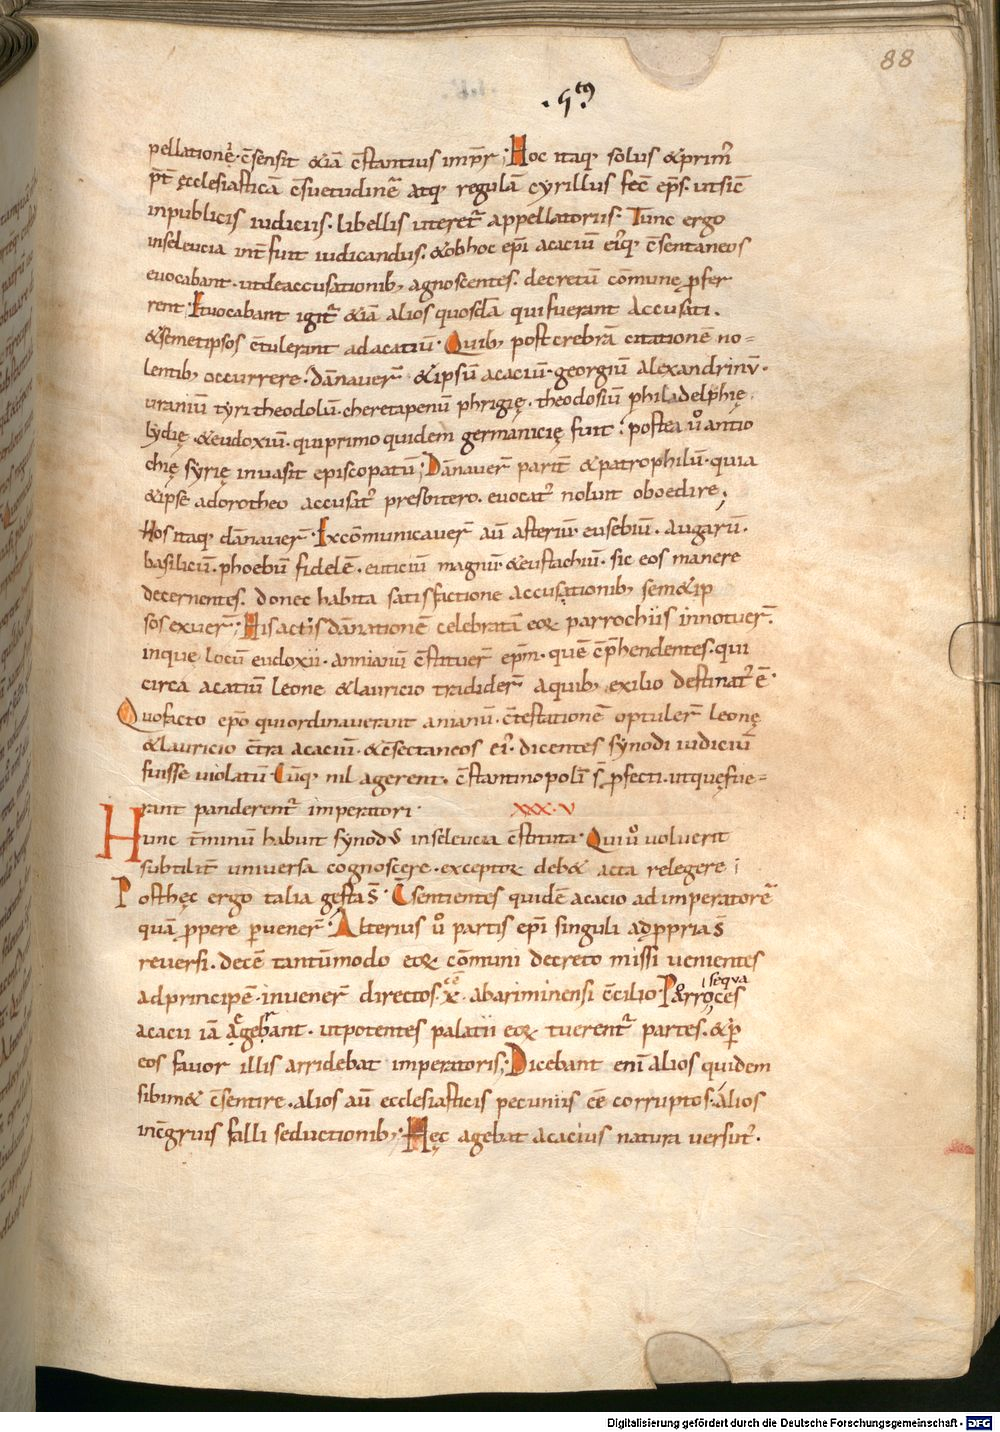 88
.5tꝰ.
pellationẽ. c̄sensit &iā c̄stantius imp̄r; Hoc itaq; solus &prim̄
p̄t ęcclesiasticā c̄suetudinē atq; regulā cyrillus fec̄ ep̄s. utsic̄
inpublicis iudiciis. libellis uteret᷑ appellatoriis. Tunc ergo
inseleucia int̄fuit iudicandus. &obhoc ep̄i acaciū ei'q; c̄sentaneos
euocabant. utdeaccusationib; agnoscentes. decretū cōmunę ꝓfer
rent. Euocabant igit᷑ &iā alios quosdā quifuerant accusati.
&semetipsos c̄tulerant adacatiū. Quib; postcrebrā citationē no-
lentib; occurrere. dānauer̄ &ipsū acaciū. georgiū alexandrinū.
uraniū tyri theodolū. cheretapenū phrigię. theodosiū philadelphię
lydię &eudoxiū. quiprimo quidem germanicię fuit; postea ůo antio
chię syrię inuasit episcopatū; Dānauer̄ parit̄ &patrophilū. quia
&ipse adorotheo accusat᷑ presbitero. euocat᷑ noluit oboedire;
Hos itaq; dānauer̄. Excōmunicauer̄ aū asteriū. eusebiū. augarū.
basiliciū. phoebū fidelē. euticiū magnū &eustachiū. sic eos manere
decernentes. donec habita satisfactione accusationib; sem&ip
sos exuer̄; His actis dānationē celebratā eoꝝ parrochiis innotuer̄.
inque locū eudoxii. annianū c̄stituer̄ ep̄m. quē c̄p̄hendentes. qui
circa acatiū leone &lauricio tradider̄ aquib; exilio destinat᷑ ē.
Quofacto ep̄o quiordinauerant anianū. c̄testationē optuler̄ leonę
&lauricio c̄tra acaciū. &c̄sectaneos ei'. dicentes synodi iudiciū
fuisse uiolatū. Cūq; nil agerent. c̄stantinopolī s̄ ꝓfecti. utquęfue-
rant panderent᷑ imperatori. XXX.V
Hunc t̄minū habuit synodꝰ inseleucia c̄stituta. Qui ůo uoluerit
subtilit̄ uniuersa cognoscere. exceptoꝝ deb& acta relegere;
Posthęc ergo talia gesta s̄. C̄sentientes quidē acacio adimperatorē
quā ꝓpere ꝑuener̄. Alterius ůo partis ep̄i singuli adꝓpria s̄
reuersi. decē tantūmodo eoꝝ cōmuni decreto missi uenientes
adprincipē. inuener̄ directos. x̄. abariminensi c̄cilio. Porro seqva ces
acacii iā agebant. utpotentes palatii eoꝝ tuerent᷑ partes. &ꝑ
eos fauor illis arridebat imperatoris; Dicebant enī alios quidem
sibim& c̄sentire. alios aū ecclesiasticis pecuniis eē corruptos. alios
inc̄gruis falli seductionib;. Hęc agebat acacius natura uersut᷑.
Digitalisierung gefördert durch die Deutsche Forschungsgemeinschaft - DFG